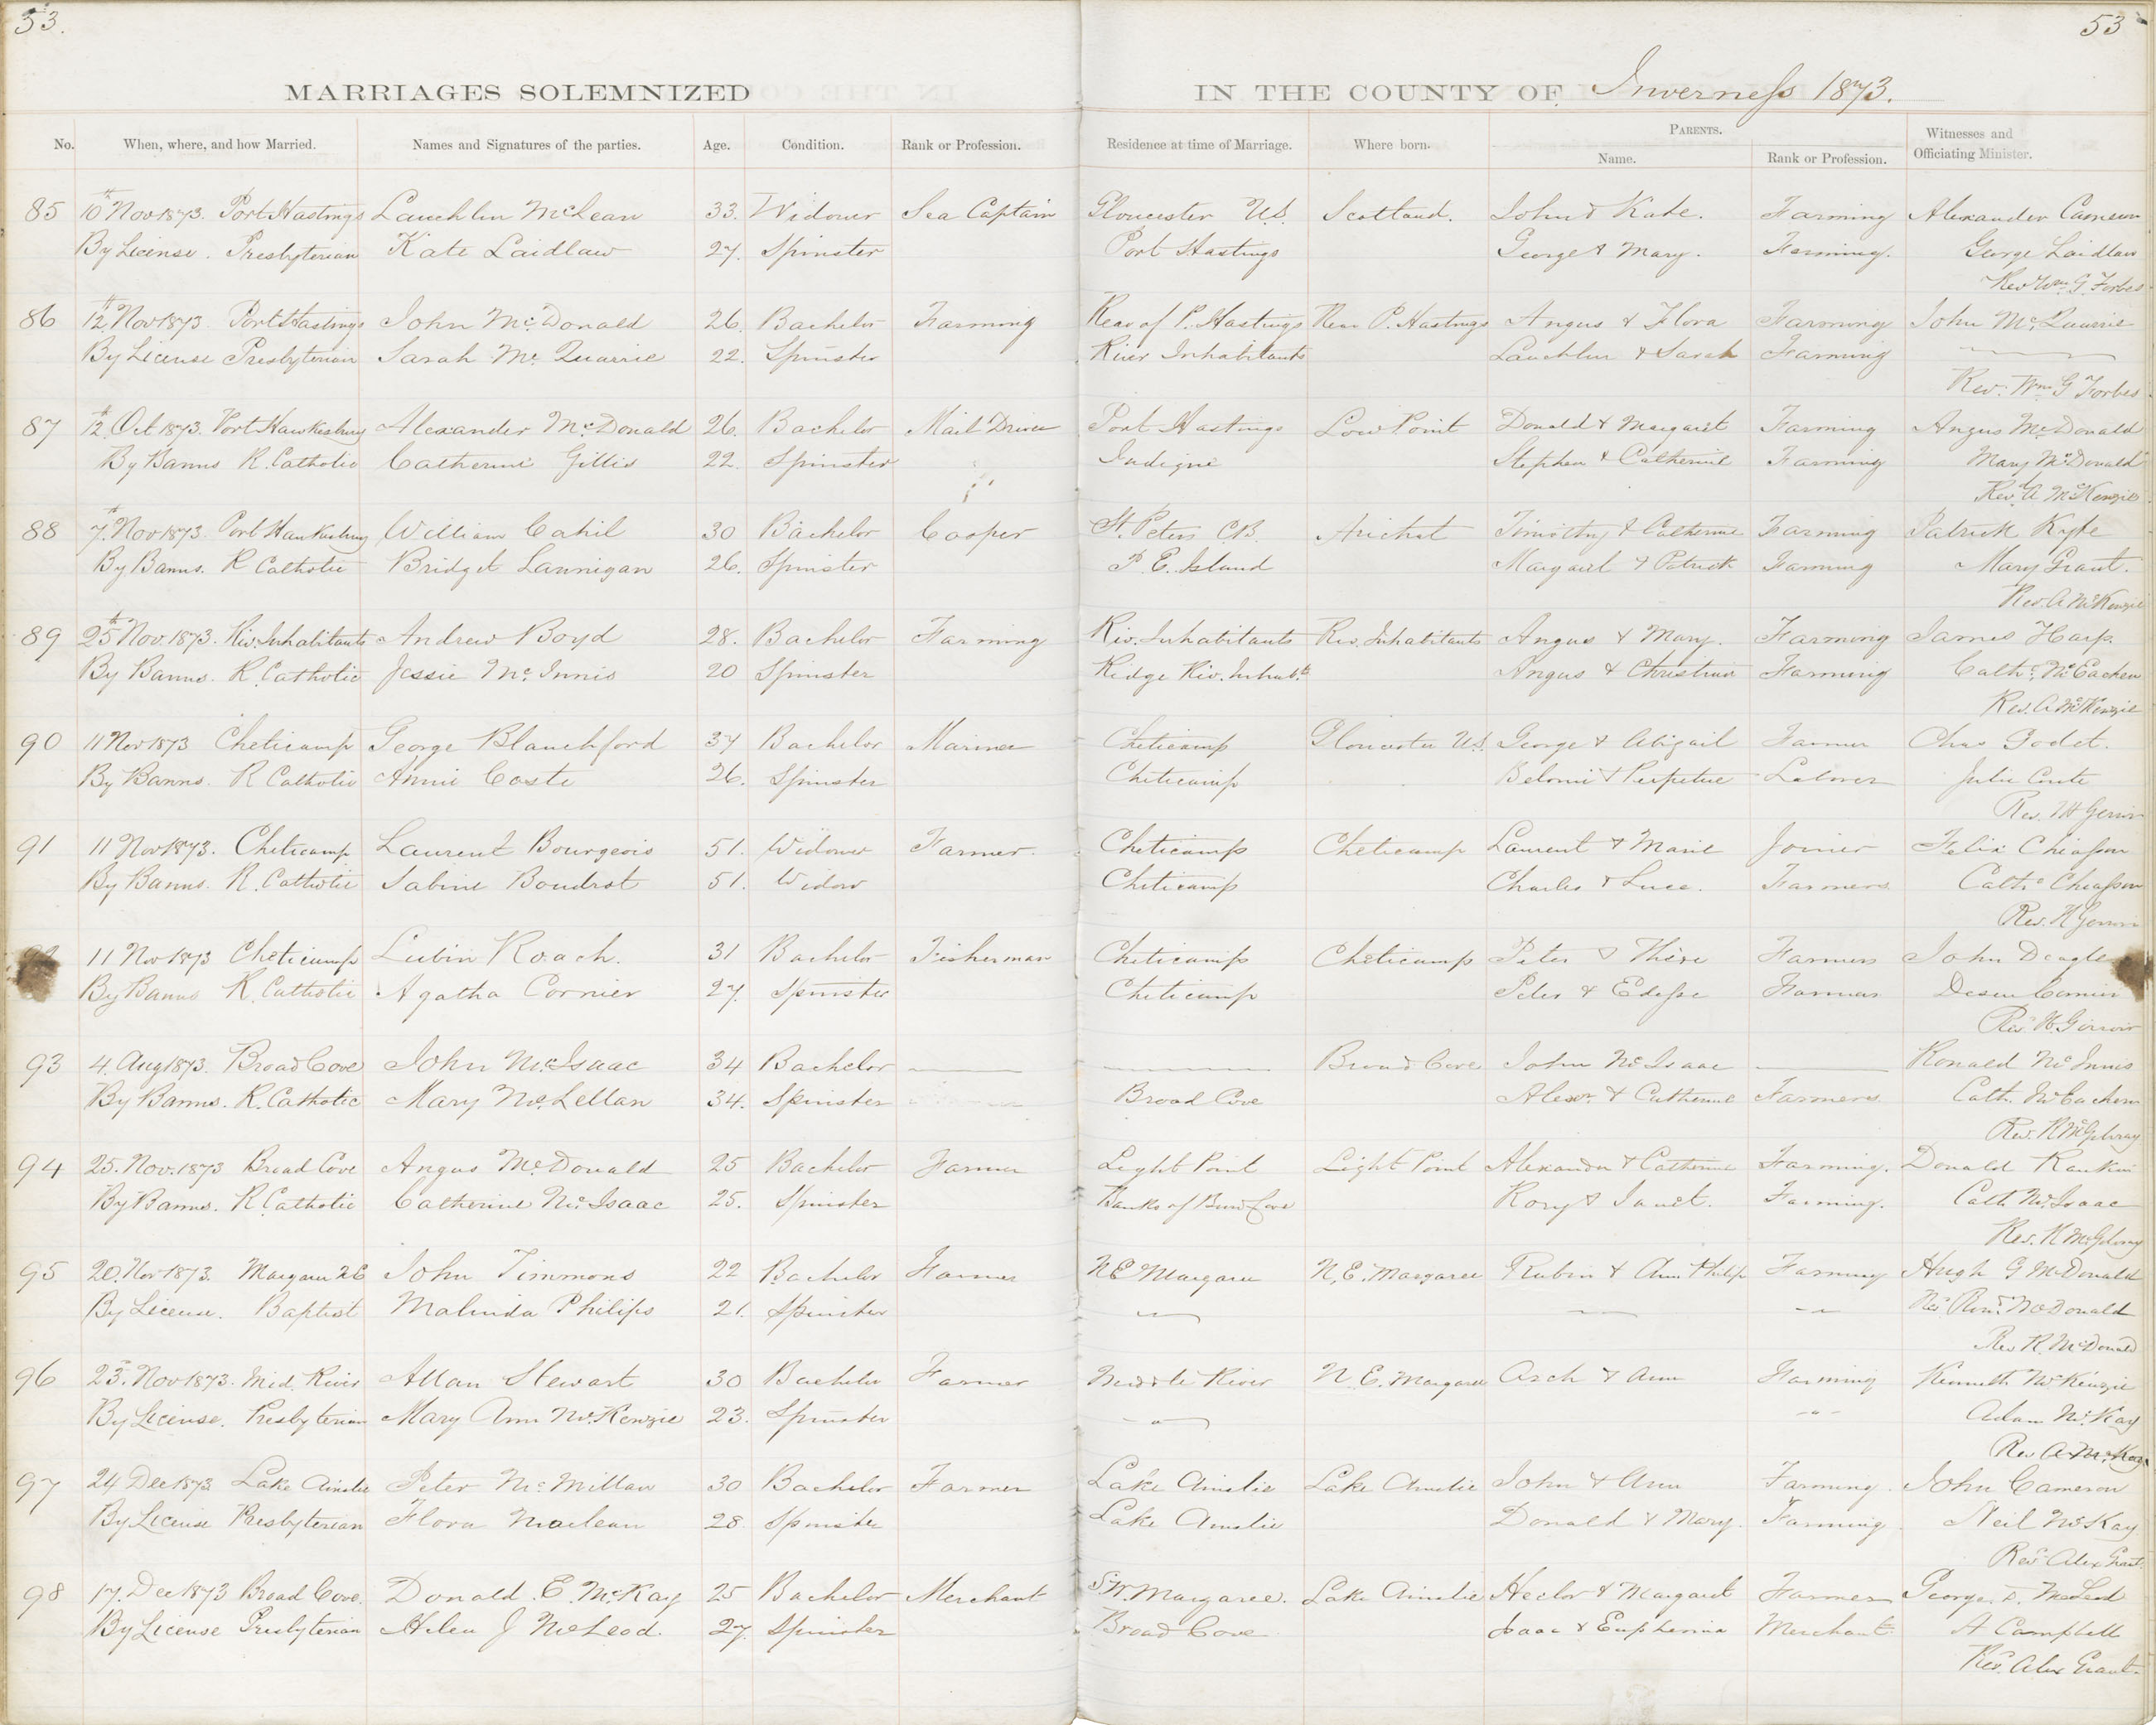 53. 53
MARRIAGES SOLEMNIZED IN THE COUNTY OF Inverness 1873.
No. When, where, and how Married. Names and Signatures of the parties. Age. Condition. Rank or Profession. Residence at time of Marriage. Where born. PARENTS. Name. Rank or Profession. Witnesses and Officiating Minister.
85 10th Nov 1873. Port Hastings Lauchlin McLean 33. Widower Sea Captain Gloucester U.S. Scotland. John & Kate. Farming Alexander Cameron
By License. Presbyterian Kate Laidlaw 27. Spinster Port Hastings George & Mary. Farming. George Laidlaw
Rev Wm G. Forbes
86 12th Nov 1873 Port Hastings John McDonald 26. Bachelor Farming Rear of P. Hastings Rear P. Hastings Angus & Flora Farming John McQuarrie
By License Presbyterian Sarah McQuarrie 22. Spinster River Inhabitants Lauchlin & Sarah Farming
Rev. Wm G Forbes
87 12th Oct 1873. Port Hawkesbury Alexander McDonald 26. Bachelor Mail Driver Port Hastings Low Point Donald & Margaret Farming Angus McDonald
By Banns R. Catholic Catherine Gillis 22. Spinster Judique Stephen & Catherine Farming Mary McDonald
Rev. A McKenzie
88 7th Nov 1873. Port Hawkesbury William Cahil 30 Bachelor Cooper St. Peters C.B. Arichat Timothy & Catherine Farming Patrick Kyte
By Banns. R Catholic Bridget Lannigan 26. Spinster P. E. Island Margaret & Patrick Farming Mary Grant.
Rev. A McKenzie
89 25th Nov. 1873. Riv. Inhabitants Andrew Boyd 28. Bachelor Farming Riv. Inhabitants Riv. Inhabitants Angus & Mary. Farming James Harp.
By Banns. R. Catholic Jessie McInnis 20 Spinster Ridge Riv. Inhabts Angus & Christina Farming Cath. McEachen
Rev. A McKenzie
90 11 Nov 1873 Cheticamp George Blanchford 37 Bachelor Mariner Cheticamp Gloucester U.S. George & Abigail Farmer Chas Godet.
By Banns. R Catholic Annie Coste 26. Spinster Cheticamp Belonie & Perpetue Laborer Julie Coste
Rev.
91 11 Nov 1873. Cheticamp Laurent Bourgeois 51. Widower Farmer. Cheticamp Cheticamp Laurent & Marie Joiner Felix Chiasson
By Banns. R. Catholic Sabine Boudrot 51. Widow Cheticamp Charles & Luce. Farmers Cathe Chiasson
Rev.
11 Nov 1873 Cheticamp Lubin Roach. 31 Bachelor Fisherman Cheticamp Cheticamp Peter & Farmers John Deagle
By Banns R. Catholic Agatha Cormier 27. Spinster Cheticamp Peter & Farmers Cormier
Rev. H Girroir
93 4. Aug 1873. Broad Cove John McIsaac 34 Bachelor Broad Cove John McIsaac Ronald McInnis
By Banns. R. Catholic Mary McLellan 34. Spinster Broad Cove Alexr. & Catherine Farmers Cath. McEachern
Rev. R McGilvray
94 25. Nov. 1873 Broad Cove Angus McDonald 25 Bachelor Farmer Light Point Light Point Alexander & Catherine Farming. Donald Rankin
By Banns. R. Catholic Catherine McIsaac 25. Spinster Banks of Broad Cove Rory & Janet. Farming. Cath McIsaac
Rev. R McGilvray
95 20. Nov 1873. Margaree N.E John Timmons 22 Bachelor Farmer N.E Margaree N.E. Margaree Rubin & Ann Philip Farming Hugh G McDonald
By License. Baptist Malinda Philips 21. Spinster McDonald
Rev R. McDonald
96 23. Nov 1873. Mid. River Allan Stewart 30 Bachelor Farmer Middle River N. E. Margaree Arch & Ann Farming Kenneth McKenzie
By License. Presbyterian Mary Ann McKenzie 23. Spinster Adam McKay
Rev A McKay
97 24 Dec 1873 Lake Ainslie Peter McMillan 30 Bachelor Farmer Lake Ainslie Lake Ainslie John & Ann Farming. John Cameron
By License Presbyterian Flora Maclean 28. Spinster Lake Ainslie Donald & Mary. Farming Neil McKay
Rev. Alex Grant.
98 17. Dec 1873 Broad Cove. Donald E. McKay 25 Bachelor Merchant S.W. Margaree. Lake Ainslie Hector & Margaret Farmer George D. McLeod
By License Presbyterian Helen J McLeod. 27. Spinster Broad Cove Isaac & Euphemia Merchant A Campbell
Rev. Alex Grant.